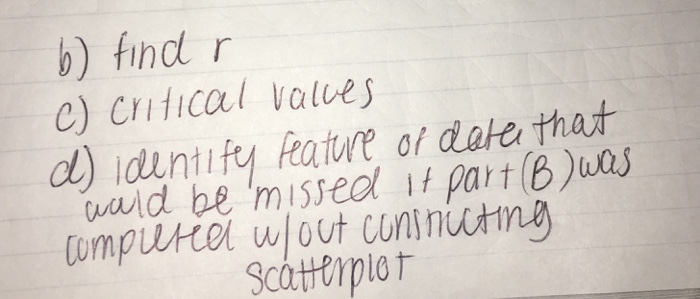 b) find r
c) critical values
d) identify feature of data that
would be missed if part (B) was
completed w/out constructing
scatterplot